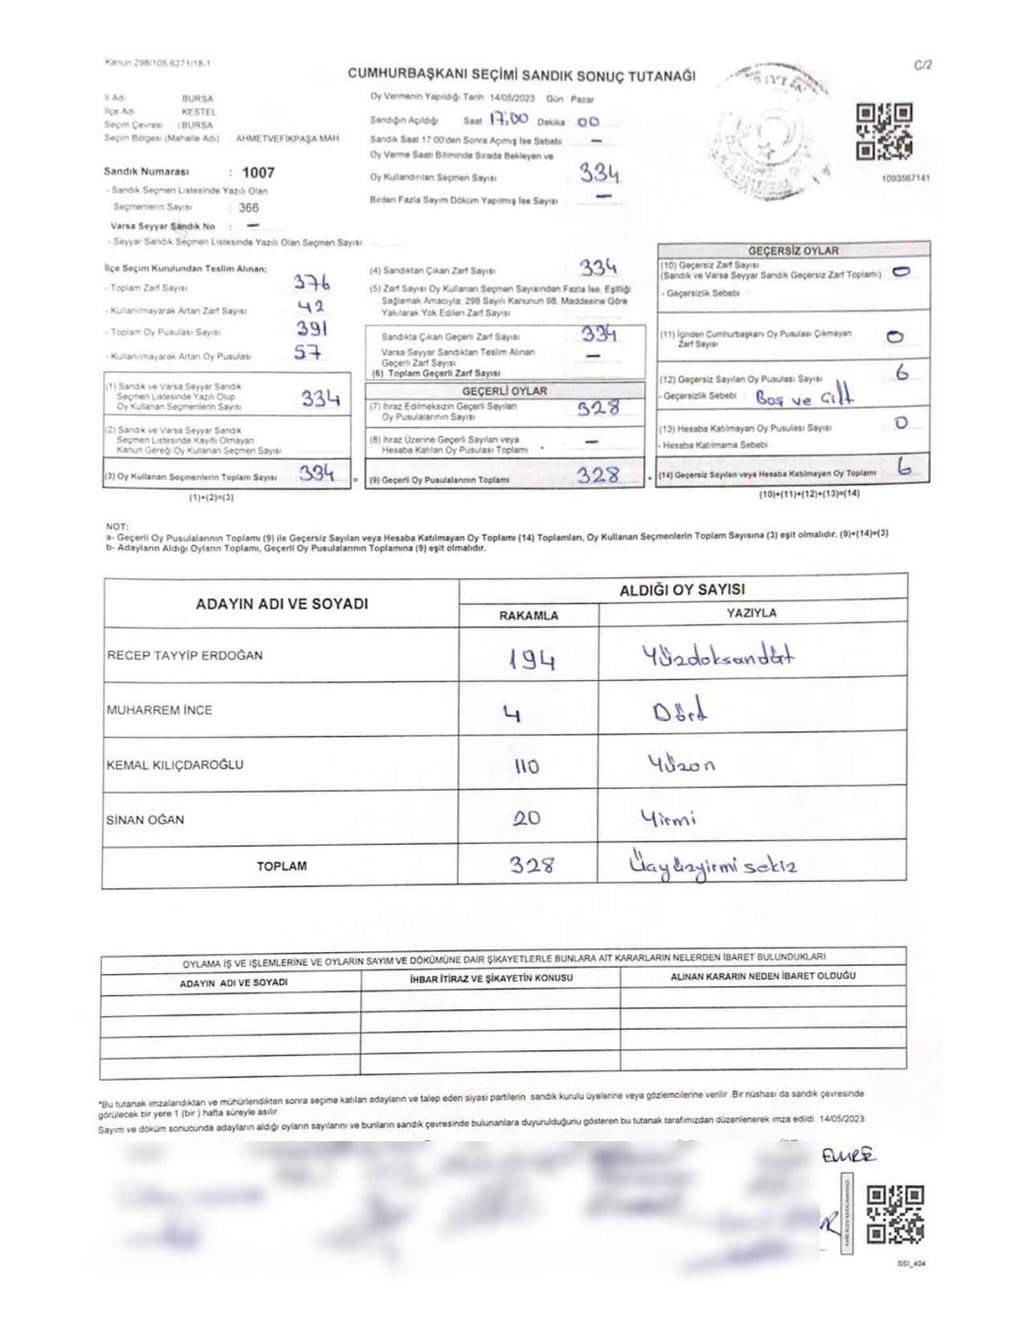 Kanun:298/105 6271/18-1
C/2
CUMHURBAŞKANI SEÇİMİ SANDIK SONUÇ TUTANAĞI
İl Adı : BURSA
İlçe Adı : KESTEL
Seçim Çevresi : BURSA
Seçim Bölgesi (Mahalle Adı) AHMETVEFİKPAŞA MAH
Sandık Numarası : 1007
- Sandık Seçmen Listesinde Yazılı Olan
Seçmenlerin Sayısı : 366
Varsa Seyyar Sandık No : -
- Seyyar Sandık Seçmen Listesinde Yazılı Olan Seçmen Sayısı
Oy Vermenin Yapıldığı Tarih 14/05/2023 Gün Pazar
Sandığın Açıldığı Saat 17.00 Dakika 00
Sandık Saat 17:00'den Sonra Açımış İse Sebebi -
Oy Verme Saati Bitiminde Sırada Bekleyen ve
Oy Kullandırılan Seçmen Sayısı 334
Birden Fazla Sayım Döküm Yapılmış İse Sayısı -
1093567141
İlçe Seçim Kurulundan Teslim Alınan;
- Toplam Zarf Sayısı 376
- Kullanılmayarak Artan Zarf Sayısı 42
- Toplam Oy Pusulası Sayısı 391
- Kullanılmayarak Artan Oy Pusulası 57
(1) Sandık ve Varsa Seyyar Sandık
Seçmen Listesinde Yazılı Olup
Oy Kullanan Seçmenlerin Sayısı 334
(2) Sandık ve Varsa Seyyar Sandık
Seçmen Listesinde Kayıtlı Olmayan
Kanun Gereği Oy Kullanan Seçmen Sayısı
(3) Oy Kullanan Seçmenlerin Toplam Sayısı 334
(1)+(2)=(3)
(4) Sandıktan Çıkan Zarf Sayısı 334
(5) Zarf Sayısı Oy Kullanan Seçmen Sayısından Fazla İse, Eşitliği
Sağlamak Amacıyla; 298 Sayılı Kanunun 98. Maddesine Göre
Yakılarak Yok Edilen Zarf Sayısı
Sandıkta Çıkan Geçerli Zarf Sayısı 334
Varsa Seyyar Sandıktan Teslim Alınan
Geçerli Zarf Sayısı -
(6) Toplam Geçerli Zarf Sayısı
GEÇERLİ OYLAR
(7) İtiraz Edilmeksizin Geçerli Sayılan
Oy Pusulalarının Sayısı 328
(8) İtiraz Üzerine Geçerli Sayılan veya
Hesaba Katılan Oy Pusulası Toplamı -
= (9) Geçerli Oy Pusulalarının Toplamı 328
GEÇERSİZ OYLAR
(10) Geçersiz Zarf Sayısı
(Sandık ve Varsa Seyyar Sandık Geçersiz Zarf Toplamı) 0
- Geçersizlik Sebebi :
(11) İçinden Cumhurbaşkanı Oy Pusulası Çıkmayan
Zarf Sayısı 0
(12) Geçersiz Sayılan Oy Pusulası Sayısı 6
- Geçersizlik Sebebi : Boş ve Çift
(13) Hesaba Katılmayan Oy Pusulası Sayısı 0
- Hesaba Katılmama Sebebi
+ (14) Geçersiz Sayılan veya Hesaba Katılmayan Oy Toplamı 6
(10)+(11)+(12)+(13)=(14)
NOT:
a- Geçerli Oy Pusulalarının Toplamı (9) ile Geçersiz Sayılan veya Hesaba Katılmayan Oy Toplamı (14) Toplamları, Oy Kullanan Seçmenlerin Toplam Sayısına (3) eşit olmalıdır. (9)+(14)=(3)
b- Adayların Aldığı Oyların Toplamı, Geçerli Oy Pusulalarının Toplamına (9) eşit olmalıdır.
ADAYIN ADI VE SOYADI
ALDIĞI OY SAYISI
RAKAMLA YAZIYLA
RECEP TAYYİP ERDOĞAN 194 Yüzdoksandört
MUHARREM İNCE 4 Dörd
KEMAL KILIÇDAROĞLU 110 Yüzon
SİNAN OĞAN 20 Yirmi
TOPLAM 328 Üçyüzyirmi sekiz
OYLAMA İŞ VE İŞLEMLERİNE VE OYLARIN SAYIM VE DÖKÜMÜNE DAİR ŞİKAYETLERLE BUNLARA AİT KARARLARIN NELERDEN İBARET BULUNDUKLARI
ADAYIN ADI VE SOYADI İHBAR İTİRAZ VE ŞİKAYETİN KONUSU ALINAN KARARIN NEDEN İBARET OLDUĞU
*Bu tutanak imzalandıktan ve mühürlendikten sonra seçime katılan adayların ve talep eden siyasi partilerin sandık kurulu üyelerine veya gözlemcilerine verilir. Bir nüshası da sandık çevresinde
görülecek bir yere 1 (bir) hafta süreyle asılır.
Sayım ve döküm sonucunda adayların aldığı oyların sayılarını ve bunların sandık çevresinde bulunanlara duyurulduğunu gösteren bu tutanak tarafımızdan düzenlenerek imza edildi. 14/05/2023
EMRE
SSI_404